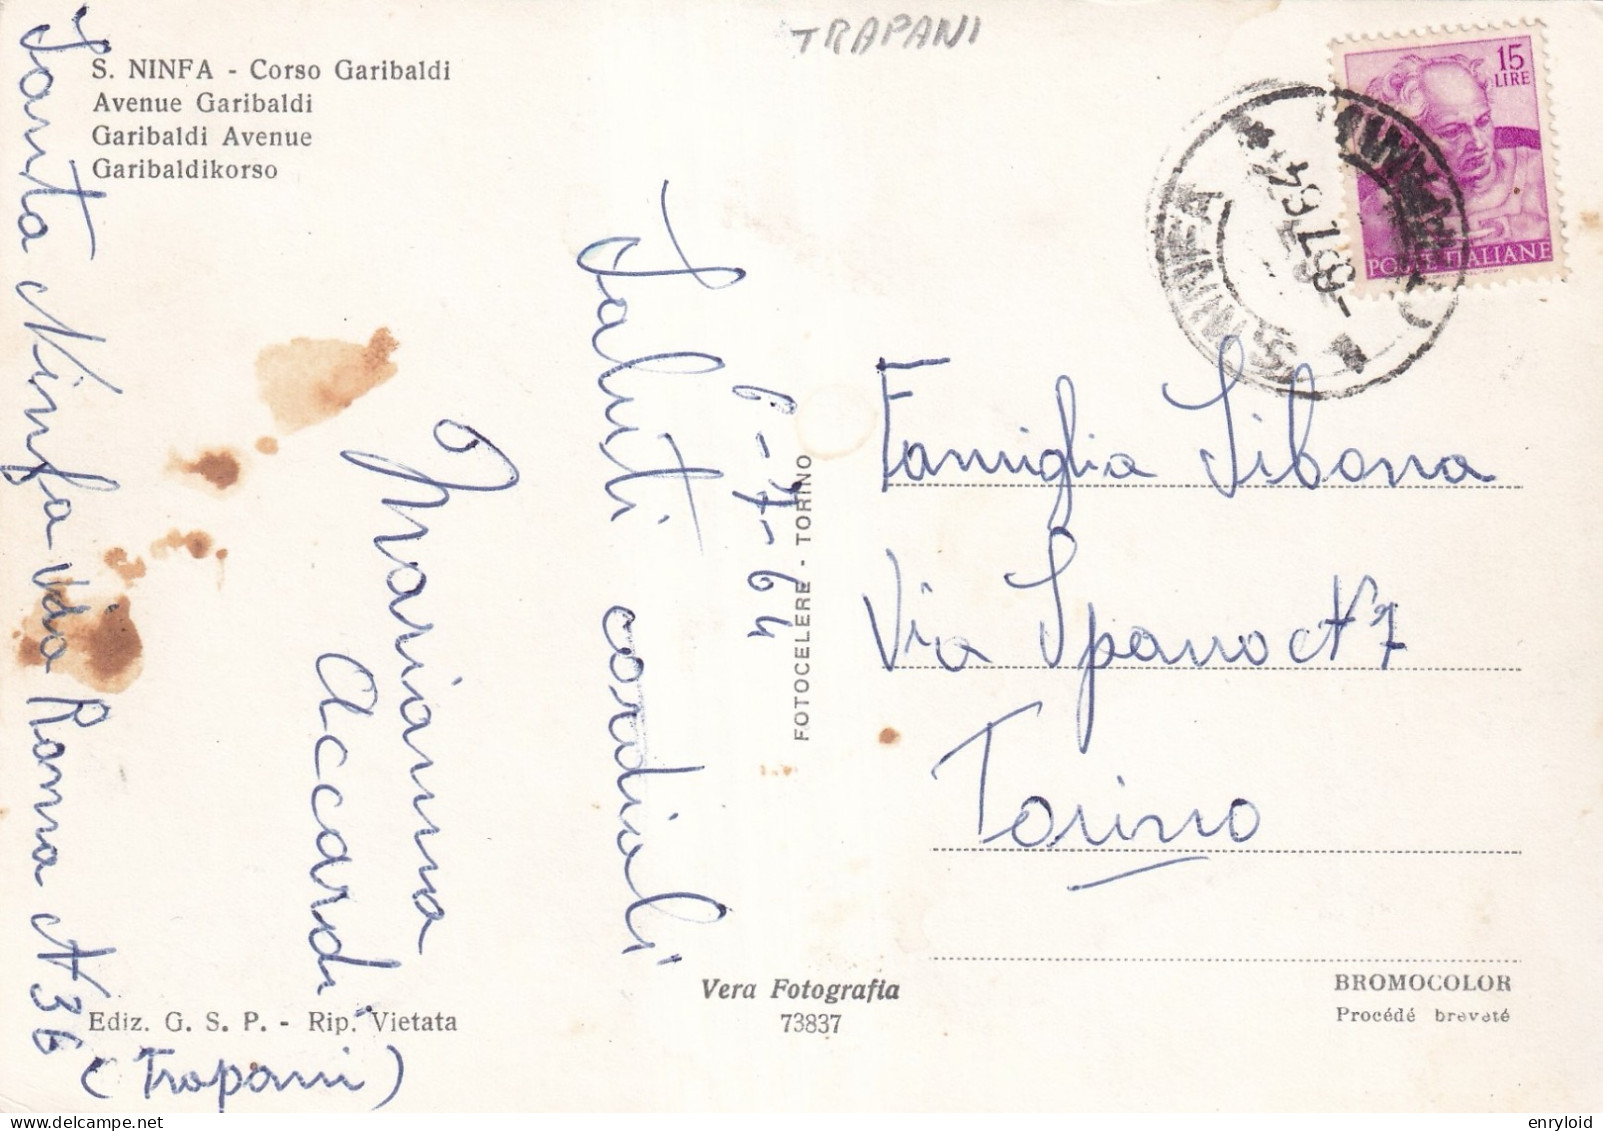 TRAPANI
S. NINFA - Corso Garibaldi
Avenue Garibaldi
Garibaldi Avenue
Garibaldikorso
15
LIRE
POSTE ITALIANE
S. NINFA
-6.7.64
6-7-64
Saluti cordiali
Marianna
Accardi
Santa Ninfa via Roma N 36
(Trapani)
Famiglia Sibona
Via Spano N 7
Torino
FOTOCELERE - TORINO
Vera Fotografia
73837
BROMOCOLOR
Procédé breveté
Ediz. G. S. P. - Rip. Vietata
enryloid